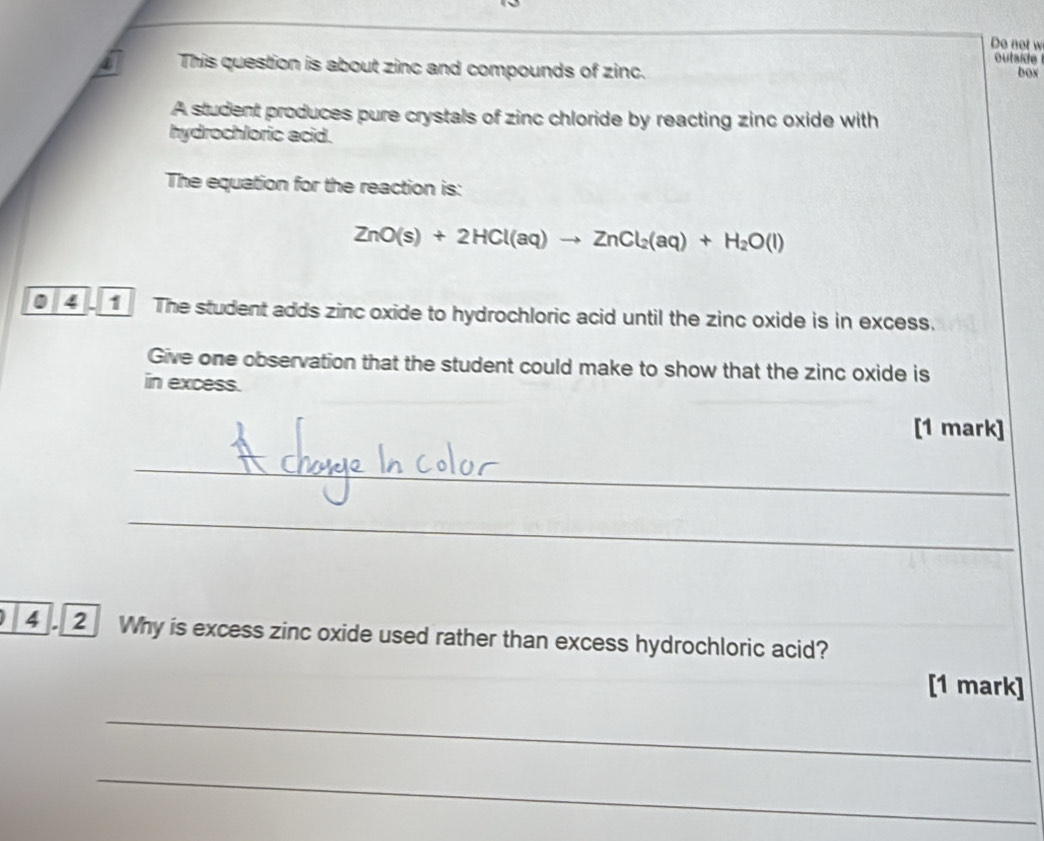 Do not w
outside
box
This question is about zinc and compounds of zinc.
A student produces pure crystals of zinc chloride by reacting zinc oxide with
hydrochloric acid.
The equation for the reaction is:
ZnO(s) + 2HCl(aq) → ZnCl₂(aq) + H₂O(l)
0 4 . 1 The student adds zinc oxide to hydrochloric acid until the zinc oxide is in excess.
Give one observation that the student could make to show that the zinc oxide is
in excess.
[1 mark]
A change In color
4 . 2 Why is excess zinc oxide used rather than excess hydrochloric acid?
[1 mark]